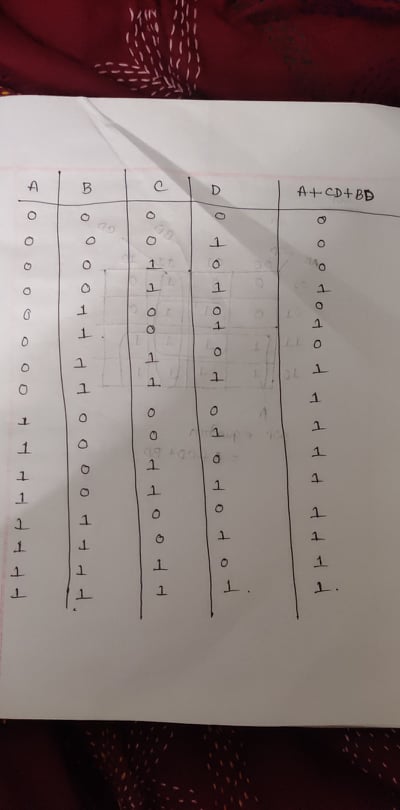 A B C D A+CD+BD
0 0 0 0 0
0 0 0 1 0
0 0 1 0 0
0 0 1 1 1
0 1 0 0 0
0 1 0 1 1
0 1 1 0 0
0 1 1 1 1
1 0 0 0 1
1 0 0 1 1
1 0 1 0 1
1 0 1 1 1
1 1 0 0 1
1 1 0 1 1
1 1 1 0 1
1 1 1 1. 1.